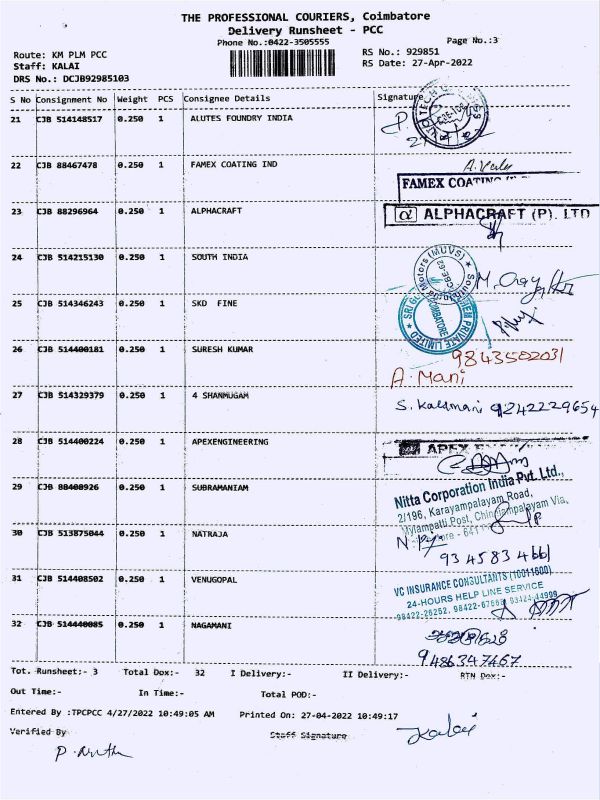 THE PROFESSIONAL COURIERS, Coimbatore
Delivery Runsheet - PCC
Phone No.:0422-3505555
Page No.:3
Route: KM PLM PCC
RS No.: 929851
Staff: KALAI
RS Date: 27-Apr-2022
DRS No.: DCJB92985103
S No Consignment No Weight PCS Consignee Details Signature
21 CJB 514148517 0.250 1 ALUTES FOUNDRY INDIA
22 CJB 88467478 0.250 1 FAMEX COATING IND
FAMEX COATING
23 CJB 88296964 0.250 1 ALPHACRAFT
α ALPHACRAFT (P). LTD
24 CJB 514215130 0.250 1 SOUTH INDIA
25 CJB 514346243 0.250 1 SKD FINE
26 CJB 514400181 0.250 1 SURESH KUMAR
9843502031
A. Mani
27 CJB 514329379 0.250 1 4 SHANMUGAM
S. Kalamani 9242229654
28 CJB 514400224 0.250 1 APEXENGINEERING
APEX
29 CJB 88400926 0.250 1 SUBRAMANIAM
Nitta Corporation India Pvt. Ltd.,
2/196, Karayampalayam Road,
Mylampatti Post, Chinniampalayam Via,
30 CJB 513875044 0.250 1 NATRAJA
93 4583 4661
31 CJB 514408502 0.250 1 VENUGOPAL
VC INSURANCE CONSULTANTS (10011600)
24-HOURS HELP LINE SERVICE
98422-26252, 98422-67668, 93424-44999
32 CJB 514440085 0.250 1 NAGAMANI
9486347467
Tot. Runsheet:- 3 Total Dox:- 32 I Delivery:- II Delivery:- RTN Dox:-
Out Time:- In Time:- Total POD:-
Entered By :TPCPCC 4/27/2022 10:49:05 AM Printed On: 27-04-2022 10:49:17
Verified By Staff Signature
Kalai